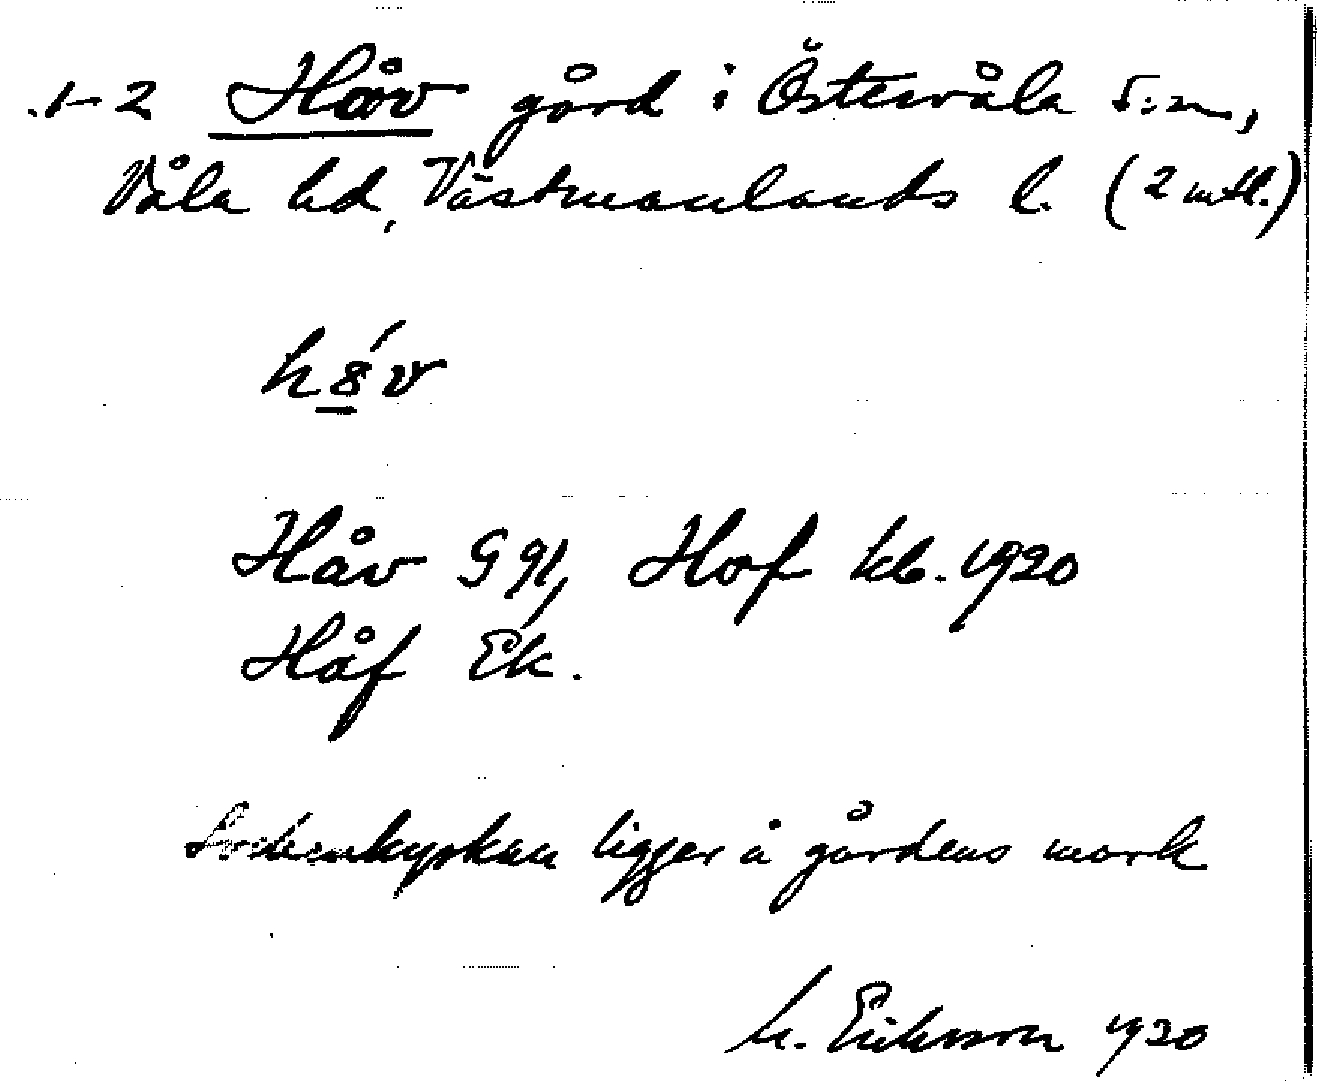 1-2 Håv gård i Östervåla s:n,
Våla hd, Västmanlands l. (2 mtl.)
Håv G 91, Hof kb. 1920
Håf Ek.
Sockenkyrkan ligger å gårdens mark
M. Eriksson 1920